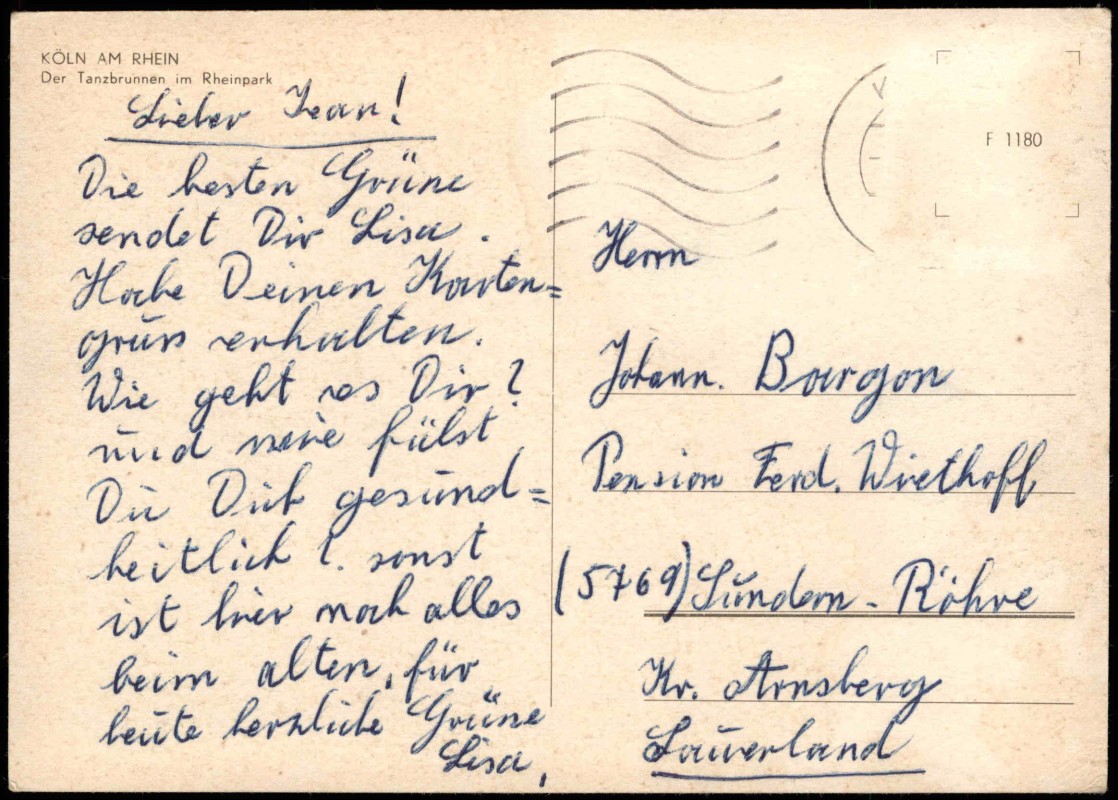 KÖLN AM RHEIN
Der Tanzbrunnen im Rheinpark
Lieber Jean!
Die besten Grüße
sendet Dir Lisa.
Habe Deinen Karten=
gruss erhalten.
Wie geht es Dir?
und wie fülst
Du Dich gesund=
heitlich?. sonst
ist hier noch alles
beim alten, für
heute herzliche Grüße
Lisa,
F 1180
Herrn
Johann. Bargon
Pension Ferd. Wiethoff
(5769) Sundern - Röhre
Kr. Arnsberg
Sauerland